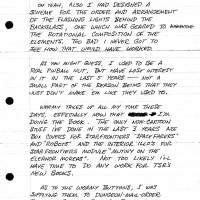 OH YEAH, ALSO I HAD DESIGNED A
SCHEME FOR THE ORDER AND ARRANGEMENT
OF THE FLASHING LIGHTS BEHIND THE
BACKGLASS, ONE WHICH WAS GEARED TO
THE ROTATIONAL COMPOSITION OF THE
ELEMENTS. TOO BAD I NEVER GOT TO
SEE HOW THAT WOULD HAVE WORKED.
AS YOU MIGHT GUESS, I USED TO BE A
REAL PINBALL NUT, BUT HAVE LOST INTEREST
IN IT IN THE LAST 5 YEARS — NOT A
SMALL PART OF THE REASON BEING THAT THEY
JUST DON'T MAKE 'EM LIKE THEY USED TO.
WORMY TAKES UP ALL MY TIME THESE
DAYS, ESPECIALLY NOW THAT I'M
DOING THE BOOK. THE ONLY NON-CARTOON
STUFF I'VE DONE IN THE LAST 3 YEARS ARE
BOX COVERS FOR STARFRONTIERS "SPACE FORCES"
AND "ROBOTS" AND THE INTERIOR ILLOS FOR
STAR FRONTIERS MODULE "MUTINY ON THE
ELEANOR MORAES". NOT TOO LIKELY I'LL
HAVE TIME TO DO ANY WORK FOR TSR'S
NEW BOOKS.
AS TO THE WORMY BUTTONS, I WAS
SUPPLYING THEM TO DUNGEON MAIL ORDER